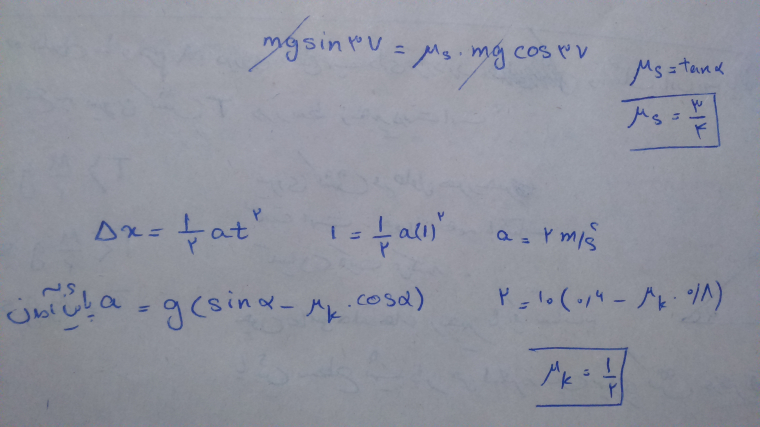 mg sin ۳۷ = μs . mg cos ۳۷
μs = tan α
μs = ۳/۴
Δx = ۱/۲ at^۲    ۱ = ۱/۲ a(۱)^۲    a = ۲ m/s^۲
پایین آمدن a = g(sin α − μk . cos α)    ۲ = ۱۰(۰/۶ − μk . ۰/۸)
μk = ۱/۲